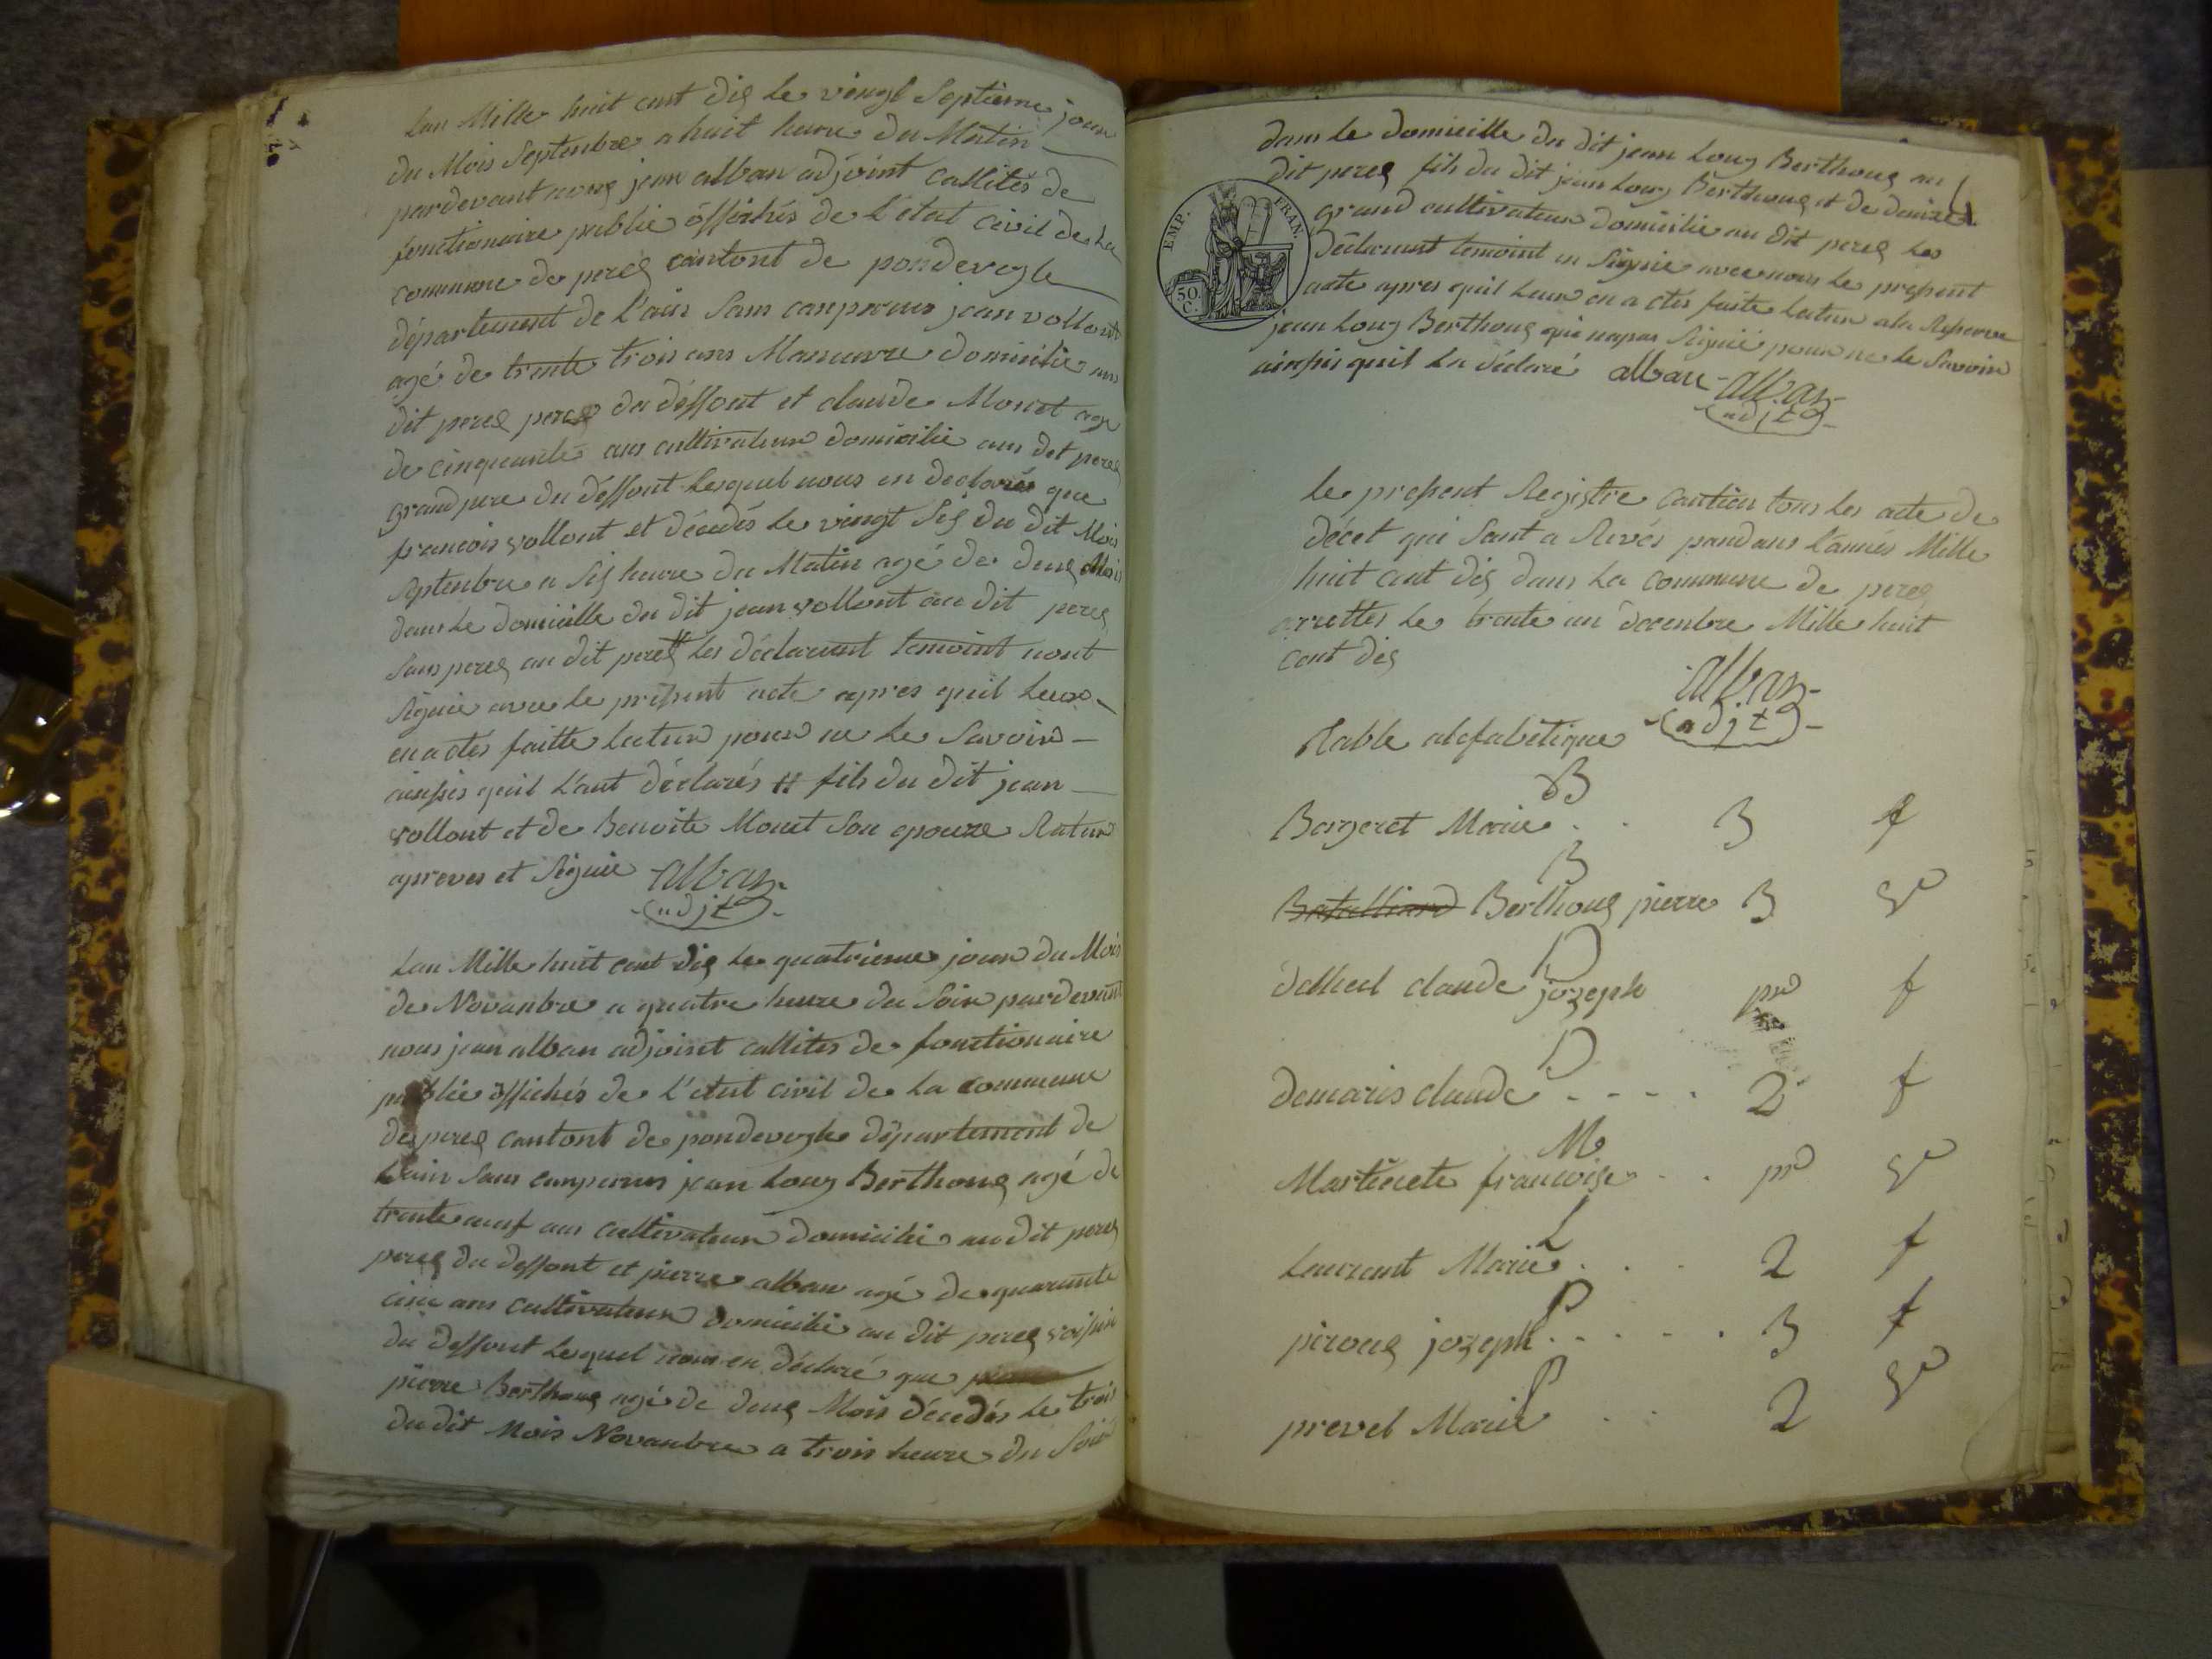 Lan Mille huit cent dix Le vingt Septieme jour
du Mois Septenbre a huit heure du Matin
pardevant nous jean alban adjoint callités de
fonctionaire public öffichés de L'état Civil de La
commune de perex cantont de pondevegle
département de L'ain Sam comparus jean vollont
agé de trente trois ans Maneuvre domicilie au
dit perex perex du déffont et claude Monet age
de cinquante ans cultivateur domicilie au dit perex
grand pere du déffont Lesquel nous en déclarés que
francois vollont et décédés Le vingt Six du dit Mois
Septenbre a Six heure du Matin agé de deux Mois
dans Le domicille du dit jean vollont au dit perex
Sans perex au dit perex # Les déclarant temoint nont
Signié avec le présent acte apres quil Leur
en a étés faitte Lecture pour ne Le Savoir
ainssis quil L'ant déclarés # fils du dit jean
vollont et de Benoite Monet Son epouze Rature
aprevés et Signié alban
adjt
Lan Mille huit cent dix Le quatrieme jour du Mois
de Novanbre a quatre heure du Soir pardevant
nous jean alban adjoint callités de fonctionaire
public öffichés de L'état civil de La commune
de perex cantont de pondevegle département de
L'ain Sans comparus jean Louy Berthoux agé de
trente neuf ans cultivateur domicilié au dit perex
perex du deffont et pierre alban agé de quarante
cinc ans cultivateur domicilié au dit perex voissin
du deffont Lesquel nous en déclaré que
pierre Berthoux agé de deux Mois décédés Le trois
du dit Mois Novanbre a trois heure du Soir
dans le domicille du dit jean Louy Berthoux au
dit perex fils du dit jean Louy Berthoux et de denize
grand cultivateur domicilie au dit perex Les
EMP. FRAN.
50. C.
déclarant temoint en Signié avec nous Le present
acte apres quil Leur en a étés faite Lecture a la Reserve
jean Louy Berthoux qui napas Signié pour ne le Savoir
ainssis quil La déclaré alban alban
adjt
Le present Registre contien tous Les acte de
décet qui Sont a Rivés pandans L'annés Mille
huit cent dix dans La commune de perex
arrettés Le trente un decenbre Mille huit
cent dix
alban
adjt
Table alefabetique
B
Bergeret Marie . . 3 f
B
Batalliard Berthoux pierre 3 go
D
dalheel claude jozeph pr f
D
demaris claude . . . . 2 f
M
Martinete francoise . . pr go
L
Laurant Marie . . . 2 f
P
piroux jozeph . . . . . 3 f
P
prevel Marie . . 2 go